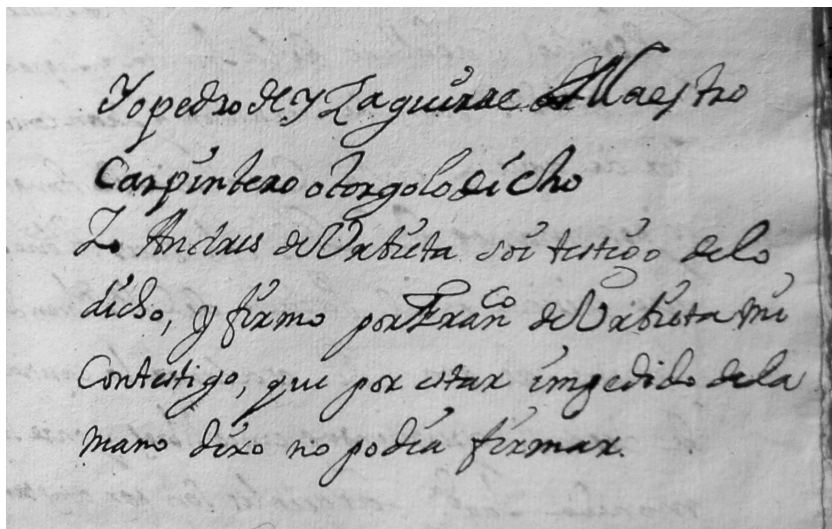 Yo pedro de YZaguirre Maestro
Carpintero otorgo lo dicho
Yo Andres de Urbieta soi testigo de lo
dicho, y firmo por Fran^co de Urbieta mi
Contestigo, que por estar impedido de la
mano dixo no podia firmar.